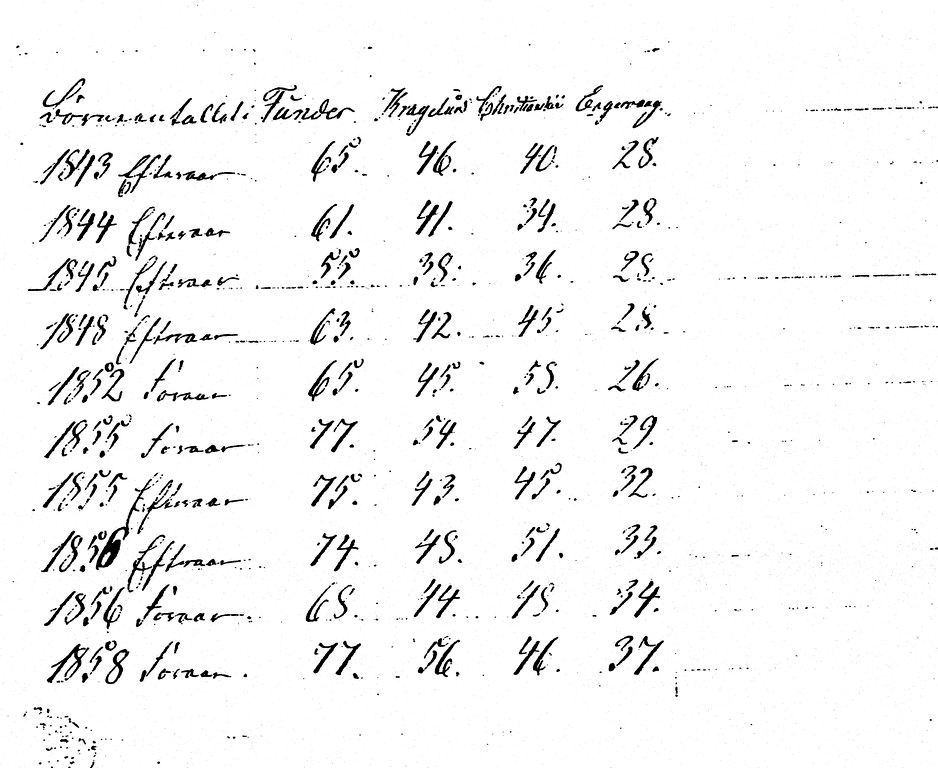 Børneantallet i Funder. Kragelund Christianshøi Engesvang.
1843 Efteraar 65. 46. 40. 28.
1844 Efteraar 61. 41. 34. 28.
1845 Efteraar 55. 38. 36. 28.
1848 Efteraar 63. 42. 45. 28.
1852 Foraar 65. 45. 58. 26.
1855 Foraar 77. 54. 47. 29.
1855 Efteraar 75. 43. 45. 32.
1856 Efteraar 74. 48. 51. 33.
1856 Foraar. 68. 44. 48. 34.
1858 Foraar. 77. 56. 46. 37.